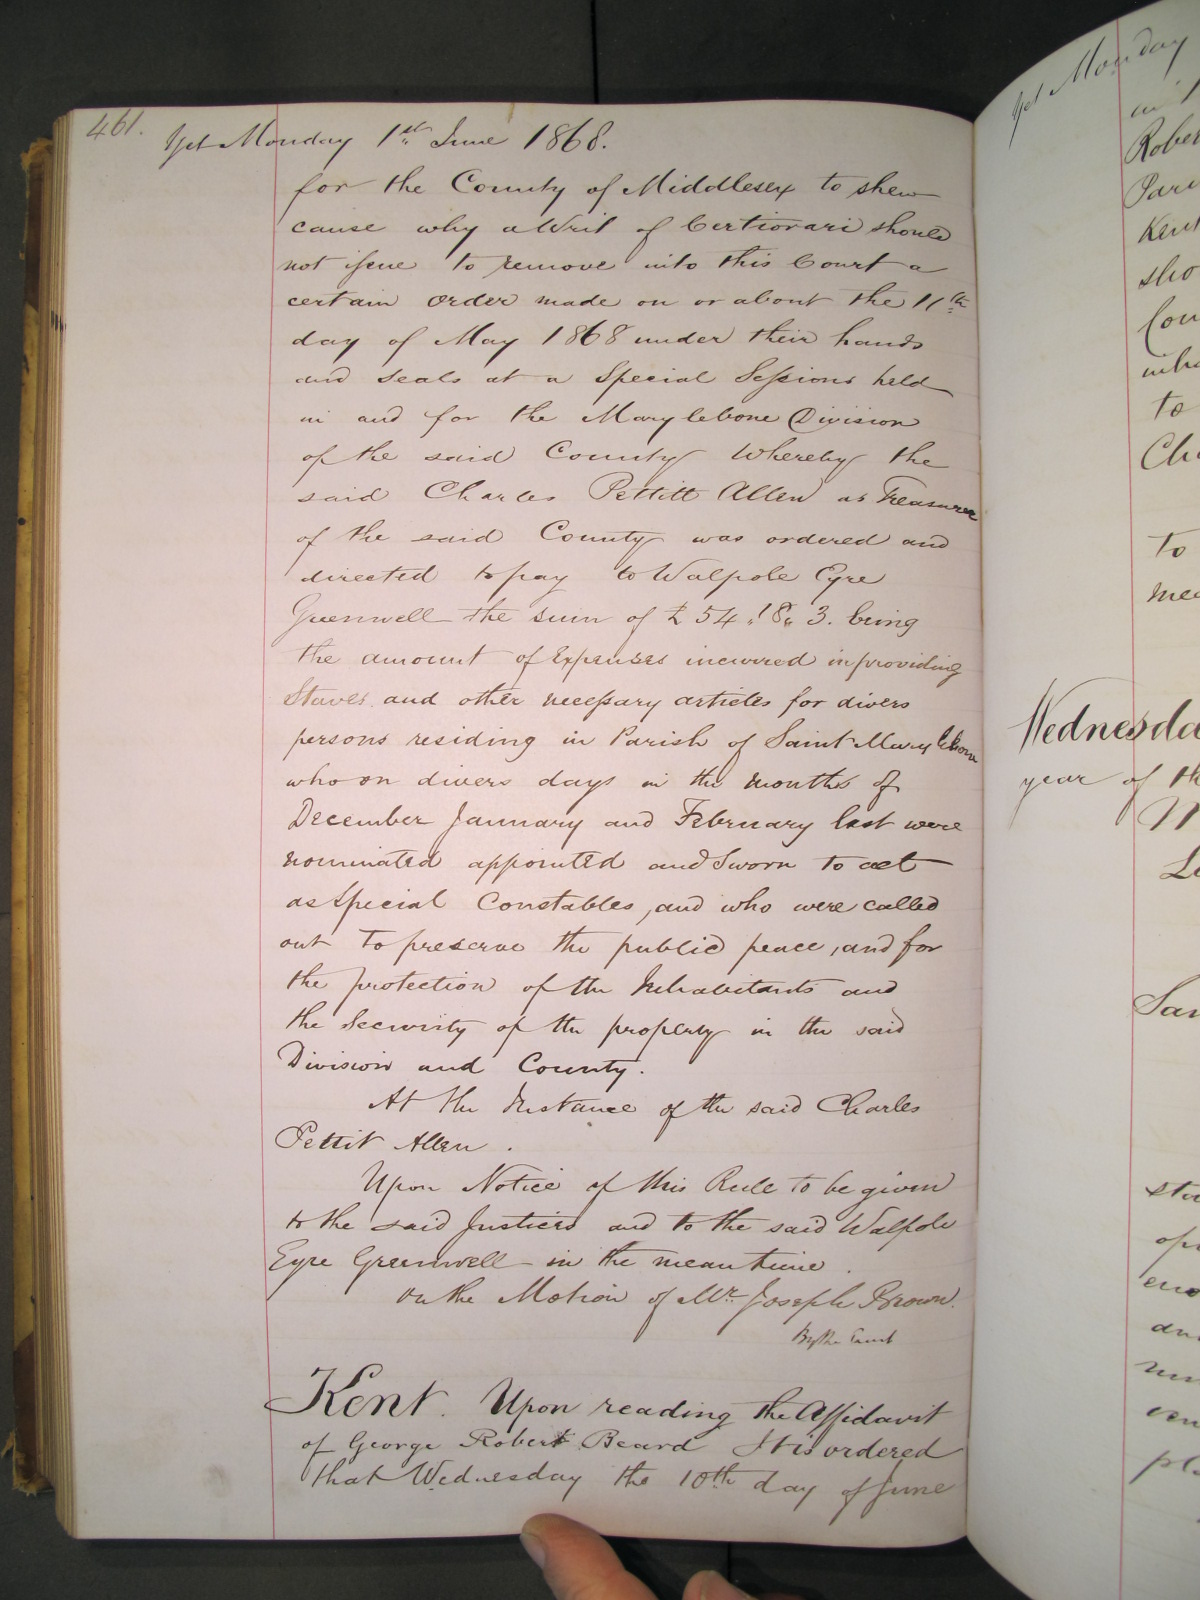 461.
Yet Monday 1st June 1868.
for the County of Middlesex to shew
cause why a Writ of Certiorari should
not issue to remove into this Court a
certain order made on or about the 11th
day of May 1868 under their hands
and Seals at a Special Sessions held
in and for the Marylebone Division
of the said County Whereby the
said Charles Pettitt Allen as Treasurer
of the said County was ordered and
directed to pay to Walpole Eyre
Greenwell the sum of £54 " 18 " 3. being
the amount of Expenses incurred in providing
Staves and other necessary articles for divers
persons residing in Parish of Saint Marylebone
who on divers days in the months of
December January and February last were
nominated appointed and Sworn to act
as Special Constables, and who were called
out to preserve the public peace, and for
the protection of the Inhabitants and
the Security of the property in the said
Division and County.
At the Instance of the said Charles
Pettit Allen.
Upon Notice of this Rule to be given
to the said Justices and to the said Walpole
Eyre Greenwell in the meantime.
On the Motion of Mr. Joseph Brown.
By the Court
Kent. Upon reading the Affidavit
of George Robert Beard It is ordered
that Wednesday the 10th day of June
Yet Monday
Kent
sho
to
to
Wednesda
year of th